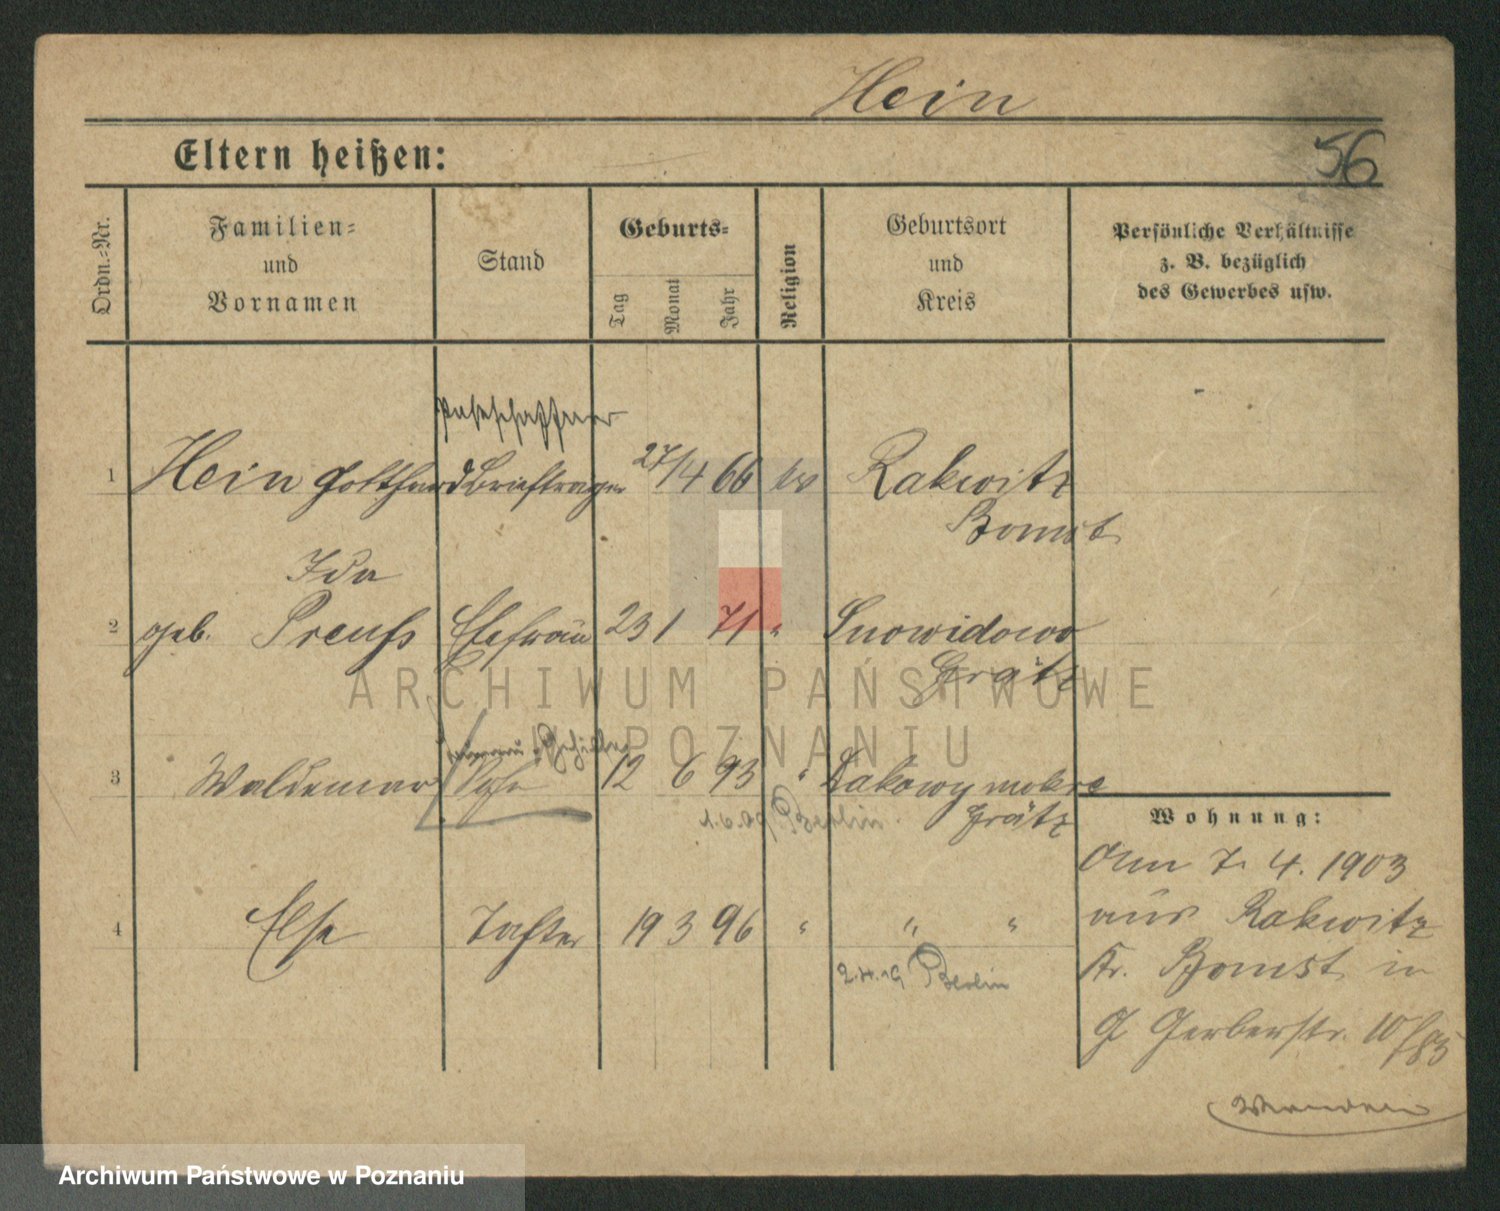 Hein
56
Eltern heißen:
Ordn.-Nr.
Familien-
und
Vornamen
Stand
Geburts-
Tag
Monat
Jahr
Religion
Geburtsort
und
Kreis
Persönliche Verhältnisse
z. B. bezüglich
des Gewerbes usw.
Postschaffner
1 Hein Gotthard Briefträger 27/4 66 ev Rakwitz
Bomst
Ida
2 geb. Preuß Ehefrau 23 1 71 " Snowidowo
Grätz
3 Waldemar Sohn 12 6 93 " Lakowy mokre
1.6.09 Berlin Grätz
4 Else Tochter 19 3 96 " " "
2.4.19 Berlin
Wohnung:
Am 7. 4. 1903
aus Rakwitz
Kr. Bomst in
Gerberstr. 10
Wenden
ARCHIWUM PAŃSTWOWE
POZNANIU
Archiwum Państwowe w Poznaniu